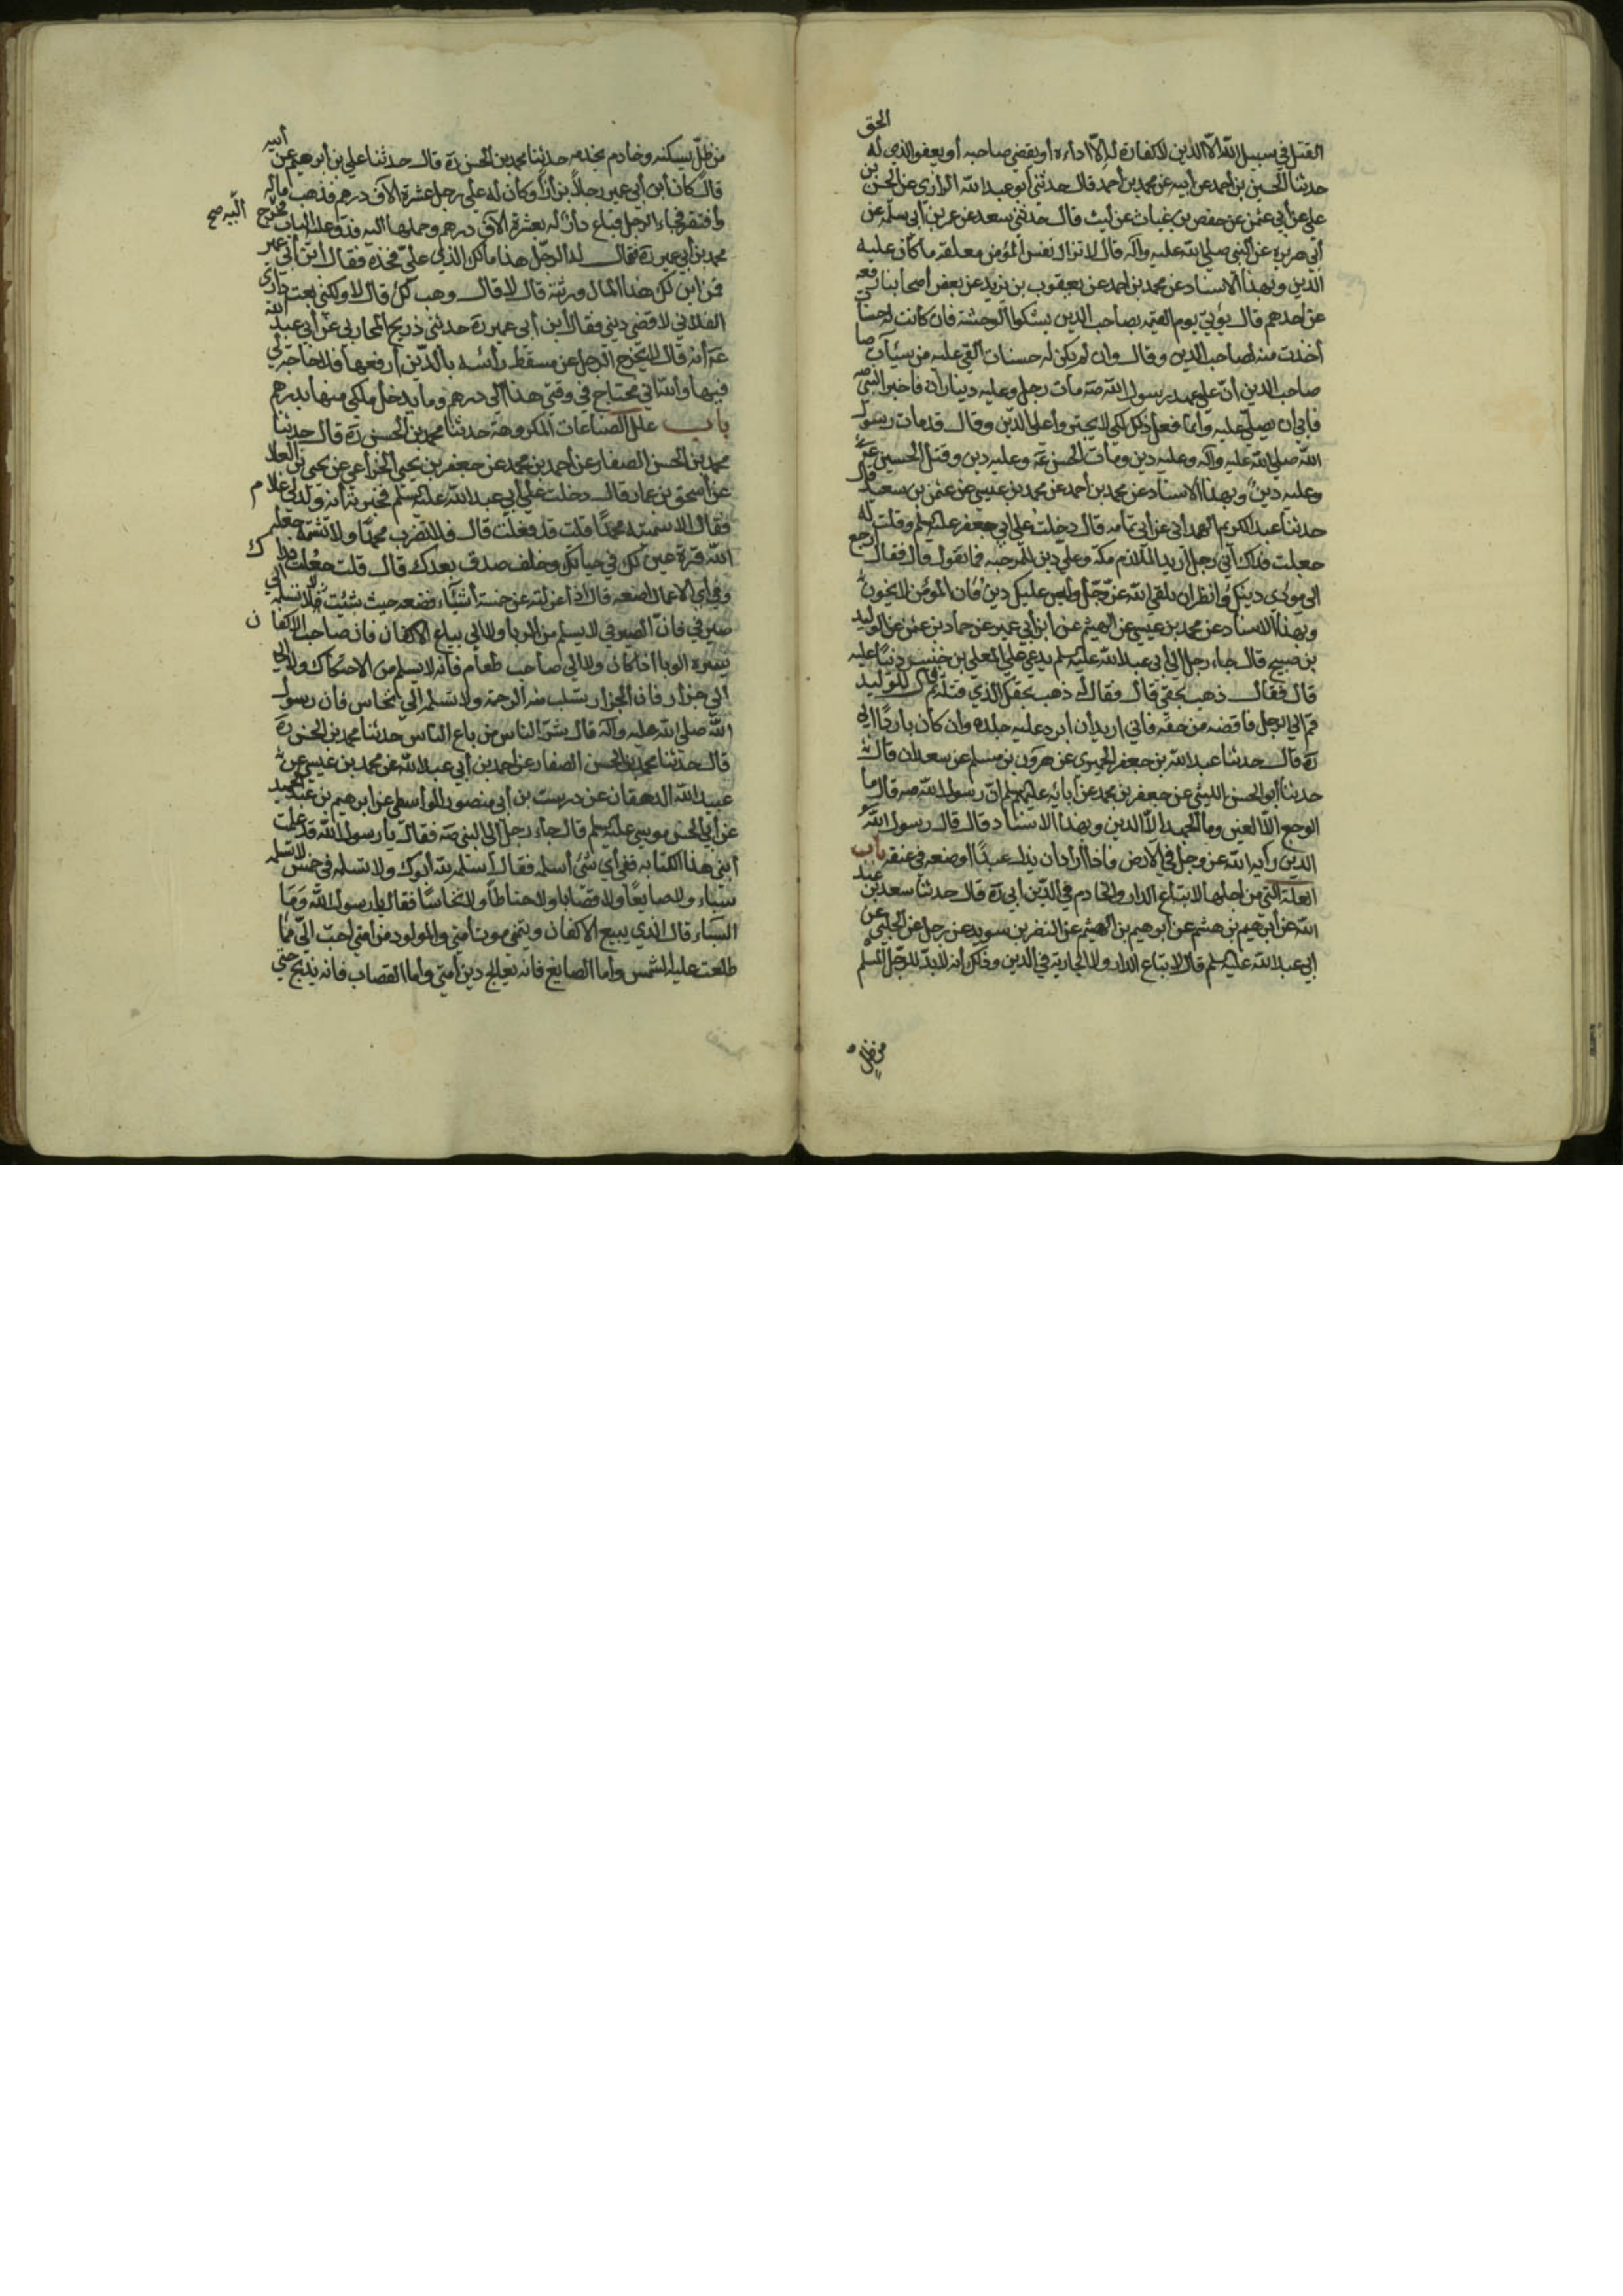 القتل في سبيل الله الا الدين لا كفارة له الا اداءه أو يقضي صاحبه أو يعفو الذي له الحق
حدثنا الحسين بن احمد عن أبيه عن محمد بن أحمد قال حدثني أبو عبد الله الرازي عن الحسن بن
علي عن أبي عثمن عن حفص بن غياث عن ليث قال حدثني سعد عن عمر بن أبي سلمة عن
أبي هريرة عن النبي صلى الله عليه وآله قال لا تزال نفس المؤمن معلقة ما كان عليه
الدين وبهذا الاسناد عن محمد بن احمد عن يعقوب بن يزيد عن بعض أصحابنا رفعه
عن أحدهم قال يؤتى يوم القيمة بصاحب الدين يشكوا الوحشة فان كانت له حسنات
أخذت منه لصاحب الدين وقال وان لم يكن له حسنات القي عليه من سيئات
صاحب الدين أن على عهد رسول الله صه مات رجل وعليه ديناران فاخبر النبي صه
فابى ان يصلي عليه وانما فعل ذلك لكي لا يجترواعلى الدين وقال قد مات رسول
الله صلى الله عليه وآله وعليه دين ومات الحسن عه وعليه دين وقتل الحسين عه
وعليه دين وبهذا الاسناد عن محمد بن أحمد عن محمد بن عيسى عن عثمن بن سعيد قال
حدثنا عبد الكريم الهمداني عن ابي ثمامه قال دخلت على ابي جعفر عليه السلم وقلت له
جعلت فداك اني رجل أريد الملازم مكة وعلي دين للمرجبه فما تقول قال فقال ارجع
الى مؤدى دينك وانظر ان تلقى الله عز وجل وليس عليك دين فان المؤمن لا يخون
وبهذا الاسناد عن محمد بن عيسى عن الهيثم عن ابن أبي عمير عن حماد بن عثمن عن الوليد
بن صبيح قال جاء رجل الى أبي عبد الله عليه السلم يدعي على المعلى بن خنيس دينا عليه
قال فقال ذهب بحقي قال فقال له ذهب بحقك الذي قتله ثم قال للوليد
قم الى الرجل فاقضه من حقه فاني اريد أن ابرد عليه جلده وان كان باردا ابي
ره قال حدثنا عبد الله بن جعفر الحميري عن هرون بن مسلم عن سعدان قال
حدثنا أبو الحسن الليثي عن جعفر بن محمد عن آبائه عليهم السلم ان رسول الله صه قال ما
الوجع الا العين وما الجهد الا الدين وبهذا الاسناد قال قال رسول الله
الدين راية الله عز وجل في الارض فاذا أراد ان يذل عبدا وضعه في عنقه باب
العلة التي من اجلها لا تباع الدار والخادم في الدين أبي ره قال حدثنا سعد بن عبد
الله عن ابرهيم بن هشم عن ابرهيم بن الهيثم عن النضر بن سويد عن رجل عن الحلبي عن
ابي عبد الله عليه السلم قال لا تباع الدار ولا الجارية في الدين وذلك انه لا بد للرجل المسلم
من ظل
من ظل يسكنه وخادم يخدمه حدثنا محمد بن الحسن ره قال حدثنا علي بن ابرهيم عن أبيه
قال كان ابن أبي عمير رجلا بزازا وكان له على رجل عشرة الآف درهم فذهب ماله
وافتقر فجاء الرجل فباع دارا له بعشرة الآف درهم وحملها اليه فدق عليه الباب فخرج
اليه صح
محمد بن أبي عمير ره فقال له الرجل هذا مالك الذي علي فخذه فقال ابن أبي عمير
فمن اين لك هذا المال ورثته قال لا قال وهب لك قال لا ولكني بعت داري
الفلاني لاقضي ديني فقال ابن أبي عمير ره حدثني ذريح المحاربي عن أبي عبد الله
عه أنه قال لا يخرج الرجل عن مسقط رأسه بالدين ارفعها فلا حاجة لي
فيها والله اني محتاج في وقتي هذا الى درهم وما يدخل ملكي منها بدرهم
باب علل الصناعات المكروهة حدثنا محمد بن الحسن ره قال حدثنا
محمد بن الحسن الصفار عن احمد بن محمد عن جعفر بن يحيى الخزاعي عن يحيى بن العلا
عن اسحق بن عمار قال دخلت على أبي عبد الله عليه السلم فخبرته أنه ولد لي غلام
فقال الا سميته محمدا قلت قد فعلت قال فلا تضرب محمدا ولا تشتمه جعله
الله قرة عين لك في حياتك وخلف صدق بعدك قال قلت جعلت فداك
وفي أي الاعمال اضعه قال اذا عزلته عن خمسة أشياء فضعه حيث شئت لا تسلمه الى
صيرفي فان الصيرفي لا يسلم من الربا ولا الى بياع الاكفان فان صاحب الاكفان
يسره الوبا اذا كان ولا الى صاحب طعام فانه لا يسلم من الاحتكار ولا
الى جزار فان الجزار تسلب منه الرحمة ولا تسلمه الى نخاس فان رسول
الله صلى الله عليه وآله قال شر الناس من باع الناس حدثنا محمد بن الحسن ره
قال حدثنا محمد بن الحسن الصفار عن احمد بن أبي عبد الله عن محمد بن عيسى عن
عبيد الله الدهقان عن درست بن أبي منصور الواسطي عن ابرهيم بن عبد الحميد
عن أبي الحسن موسى عليه السلم قال جاء رجل الى النبي صه فقال يا رسول الله قد علمت
ابني هذا الكتابه ففي أي شئ أسلمه فقال أسلمه لله أبوك ولا تسلمه في خمس لا تسلمه
سيباء ولا صايغا ولا قصابا ولا حناطا ولا نخاسا فقال يا رسول الله وما
السيباء قال الذي يبيع الاكفان ويتمنى موت أمتي وللمولود من أمتي أحب الي مما
طلعت عليه الشمس وأما الصايغ فانه يعالج دين أمتي وأما القصاب فانه يذبح حتى